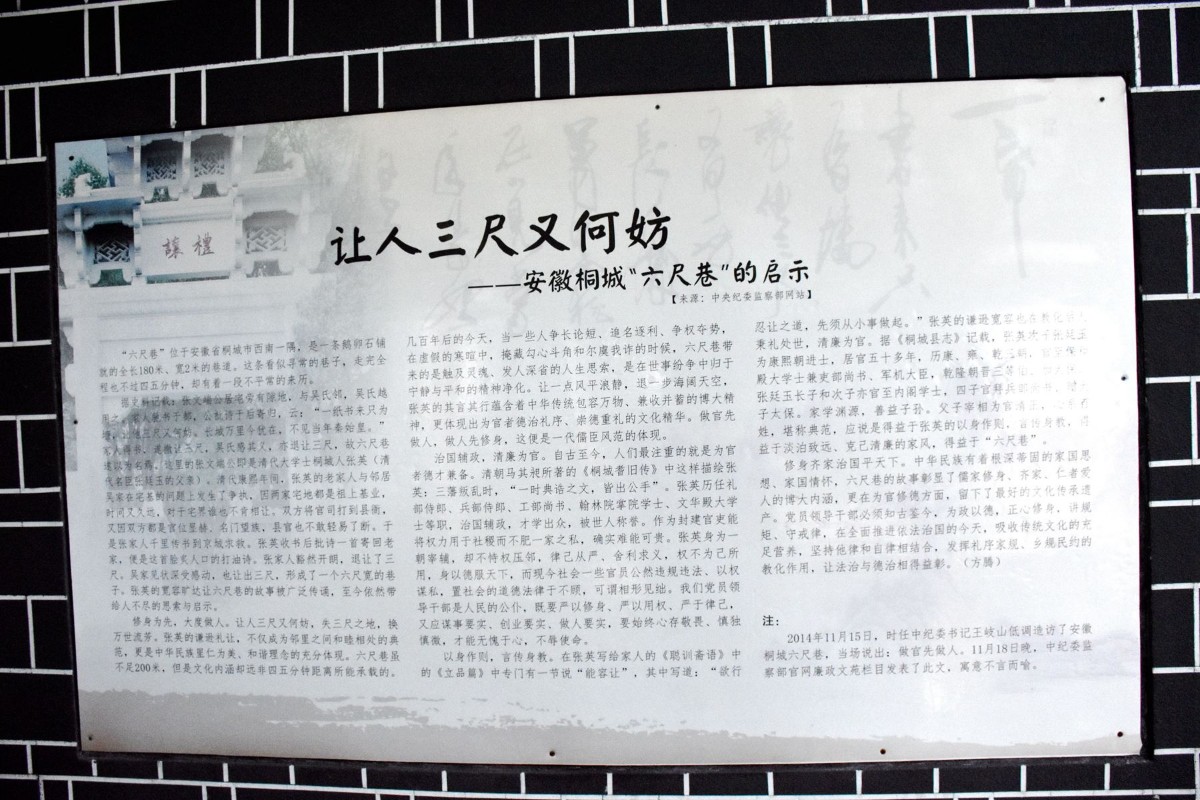 禮讓
让人三尺又何妨
——安徽桐城“六尺巷”的启示
【来源：中央纪委监察部网站】
“六尺巷”位于安徽省桐城市西南一隅，是一条鹅卵石铺
就的全长180米、宽2米的巷道。这条看似寻常的巷子，走完全
程也不过四五分钟，却有着一段不平常的来历。
据史料记载：张文端公居宅旁有隙地，与吴氏邻，吴氏越
用之。家人驰书于都，公批诗于后寄归，云：“一纸书来只为
墙，让他三尺又何妨。长城万里今犹在，不见当年秦始皇。”
家人得书，遂撤让三尺，吴氏感其义，亦退让三尺，故六尺巷
遂以为名焉。这里的张文端公即是清代大学士桐城人张英（清
代名臣张廷玉的父亲）。清代康熙年间，张英的老家人与邻居
吴家在宅基的问题上发生了争执，因两家宅地都是祖上基业，
时间又久远，对于宅界谁也不肯相让。双方将官司打到县衙，
又因双方都是官位显赫、名门望族，县官也不敢轻易了断。于
是张家人千里传书到京城求救。张英收书后批诗一首寄回老
家，便是这首脍炙人口的打油诗。张家人豁然开朗，退让了三
尺。吴家见状深受感动，也让出三尺，形成了一个六尺宽的巷
子。张英的宽容旷达让六尺巷的故事被广泛传诵，至今依然带
给人不尽的思索与启示。
修身为先，大度做人。让人三尺又何妨，失三尺之地，换
万世流芳。张英的谦逊礼让，不仅成为邻里之间和睦相处的典
范，更是中华民族里仁为美、和谐理念的充分体现。六尺巷虽
不足200米，但是文化内涵却远非四五分钟距离所能承载的。
几百年后的今天，当一些人争长论短、追名逐利、争权夺势，
在虚假的寒暄中，掩藏勾心斗角和尔虞我诈的时候，六尺巷带
来的是触及灵魂、发人深省的人生思索，是在世事纷争中归于
宁静与平和的精神净化。让一点风平浪静，退一步海阔天空，
张英的其言其行蕴含着中华传统包容万物、兼收并蓄的博大精
神，更体现出为官者德治礼序、崇德重礼的文化精华。做官先
做人，做人先修身，这便是一代儒臣风范的体现。
治国辅政，清廉为官。自古至今，人们最注重的就是为官
者德才兼备。清朝马其昶所著的《桐城耆旧传》中这样描绘张
英：三藩叛乱时，“一时典诰之文，皆出公手”。张英历任礼
部侍郎、兵部侍郎、工部尚书、翰林院掌院学士、文华殿大学
士等职，治国辅政，才学出众，被世人称誉。作为封建官吏能
将权力用于社稷而不肥一家之私，确实难能可贵。张英身为一
朝宰辅，却不恃权压邻，律己从严，舍利求义，权不为己所
用，身以德服天下，而现今社会一些官员公然违规违法、以权
谋私，置社会的道德法律于不顾，可谓相形见绌。我们党员领
导干部是人民的公仆，既要严以修身、严以用权、严于律己，
又应谋事要实、创业要实、做人要实，要始终心存敬畏、慎独
慎微，才能无愧于心，不辱使命。
以身作则，言传身教。在张英写给家人的《聪训斋语》中
的《立品篇》中专门有一节说“能容让”，其中写道：“欲行
忍让之道，先须从小事做起。”张英的谦逊宽容也在教化家人
秉礼处世，清廉为官。据《桐城县志》记载，张英次子张廷玉
为康熙朝进士，居官五十多年，历康、雍、乾三朝，官至保和
殿大学士兼吏部尚书、军机大臣，乾隆朝晋三等伯，加太保。
张廷玉长子和次子亦官至内阁学士，四子官拜兵部尚书，赠太
子太保。家学渊源，善益子孙。父子宰相为官清正，心系百
姓，堪称典范，应说是得益于张英的以身作则，言传身教，得
益于淡泊致远、克己清廉的家风，得益于“六尺巷”。
修身齐家治国平天下。中华民族有着根深蒂固的家国思
想、家国情怀，六尺巷的故事彰显了儒家修身、齐家、仁者爱
人的博大内涵，更在为官修德方面，留下了最好的文化传承遗
产。党员领导干部必须知古鉴今，为政以德，正心修身，讲规
矩、守戒律，在全面推进依法治国的今天，吸收传统文化的充
足营养，坚持他律和自律相结合，发挥礼序家规、乡规民约的
教化作用，让法治与德治相得益彰。（方腾）
注：
2014年11月15日，时任中纪委书记王岐山低调造访了安徽
桐城六尺巷，当场说出：做官先做人。11月18日晚，中纪委监
察部官网廉政文苑栏目发表了此文，寓意不言而喻。